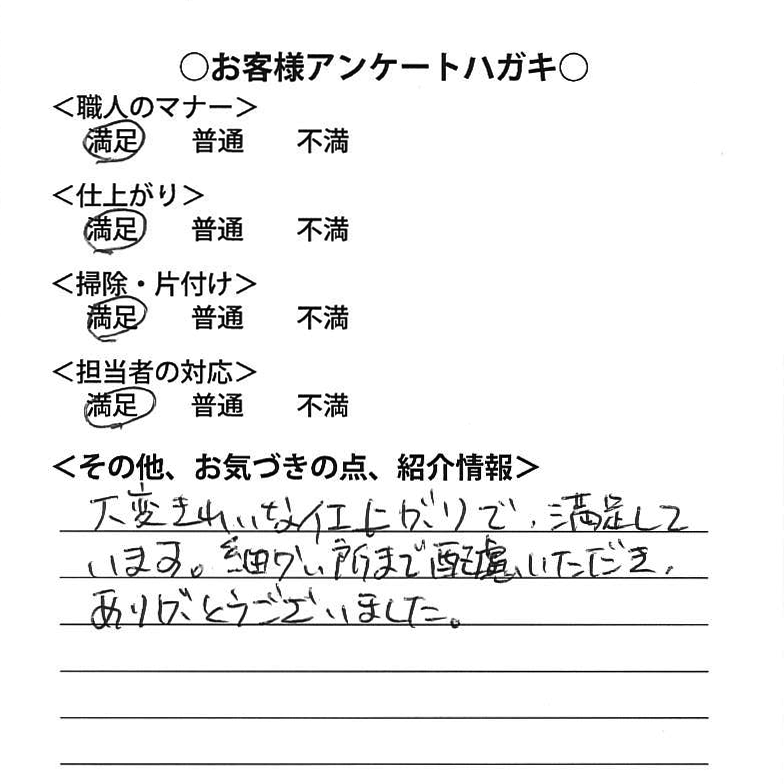 ○お客様アンケートハガキ○
＜職人のマナー＞
満足 普通 不満
＜仕上がり＞
満足 普通 不満
＜掃除・片付け＞
満足 普通 不満
＜担当者の対応＞
満足 普通 不満
＜その他、お気づきの点、紹介情報＞
大変きれいな仕上がりで、満足して
います。細かい所まで配慮いただき、
ありがとうございました。